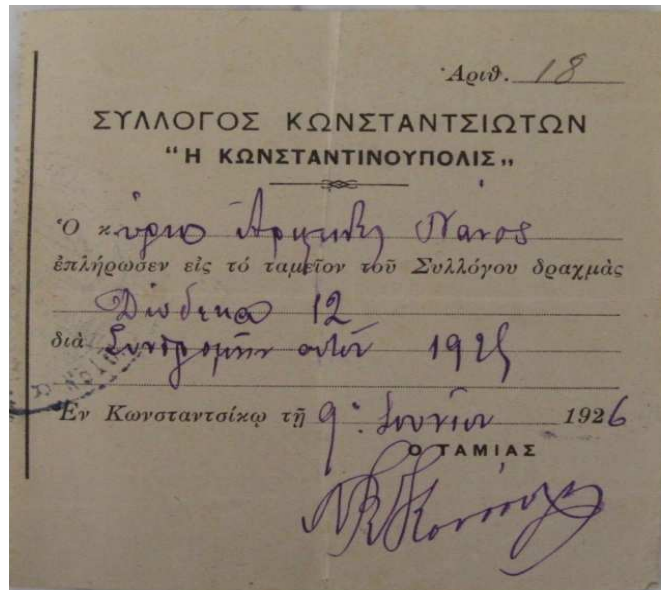 Ἀριθ. 18
ΣΥΛΛΟΓΟΣ ΚΩΝΣΤΑΝΤΣΙΩΤΩΝ
"Η ΚΩΝΣΤΑΝΤΙΝΟΥΠΟΛΙΣ„
Ὁ κύριο Νάνος
ἐπλήρωσεν εἰς τό ταμεῖον τοῦ Συλλόγου δραχμὰς
Δώδεκα 12
διὰ Συνδρομήν 1925
Ἐν Κωνσταντσίκῳ τῇ 9: Ἰουνίου 1926
Ο ΤΑΜΙΑΣ